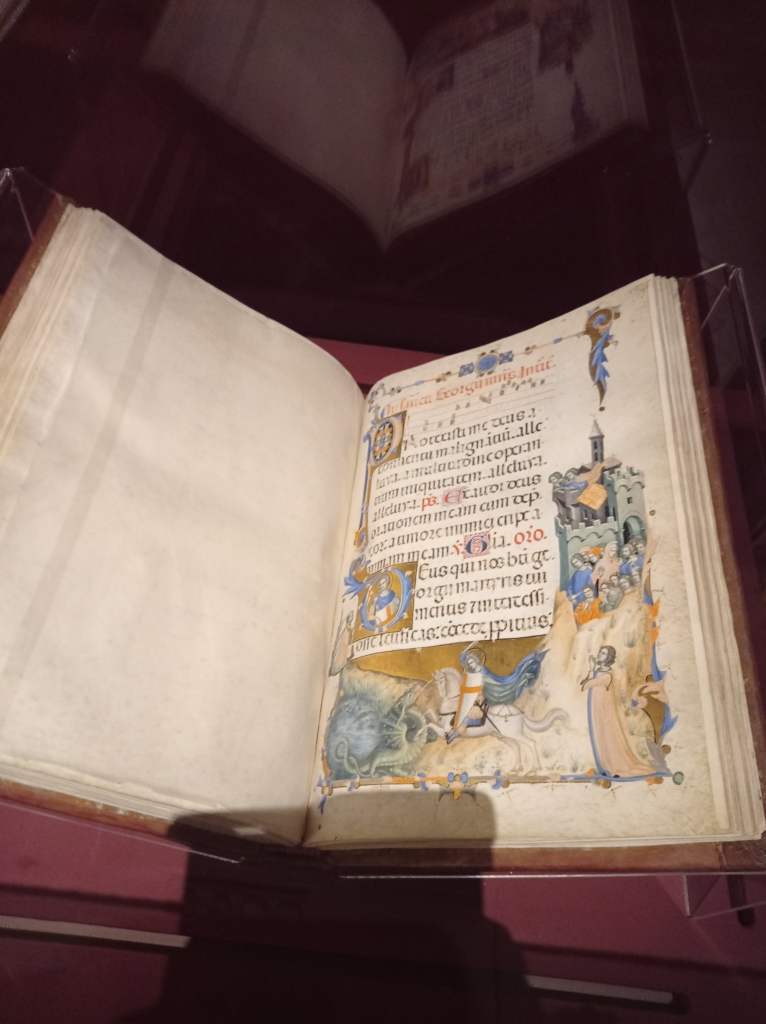 In sancti Georgii mris Introit.
Protexisti me deus a
conuentu malignantiū. alle
luya. a multitudine operan
tium iniquitatem. alleluya.
alleluya. ps. Exaudi deus
orationem meam cum dep̄
cor. a timore inimici eripe a
nimam meam. V. Glia. Oro.
Deus qui nos bti ge
orgii martyris tui
meritis ⁊ intercessi
one letificas: concede ppitius.